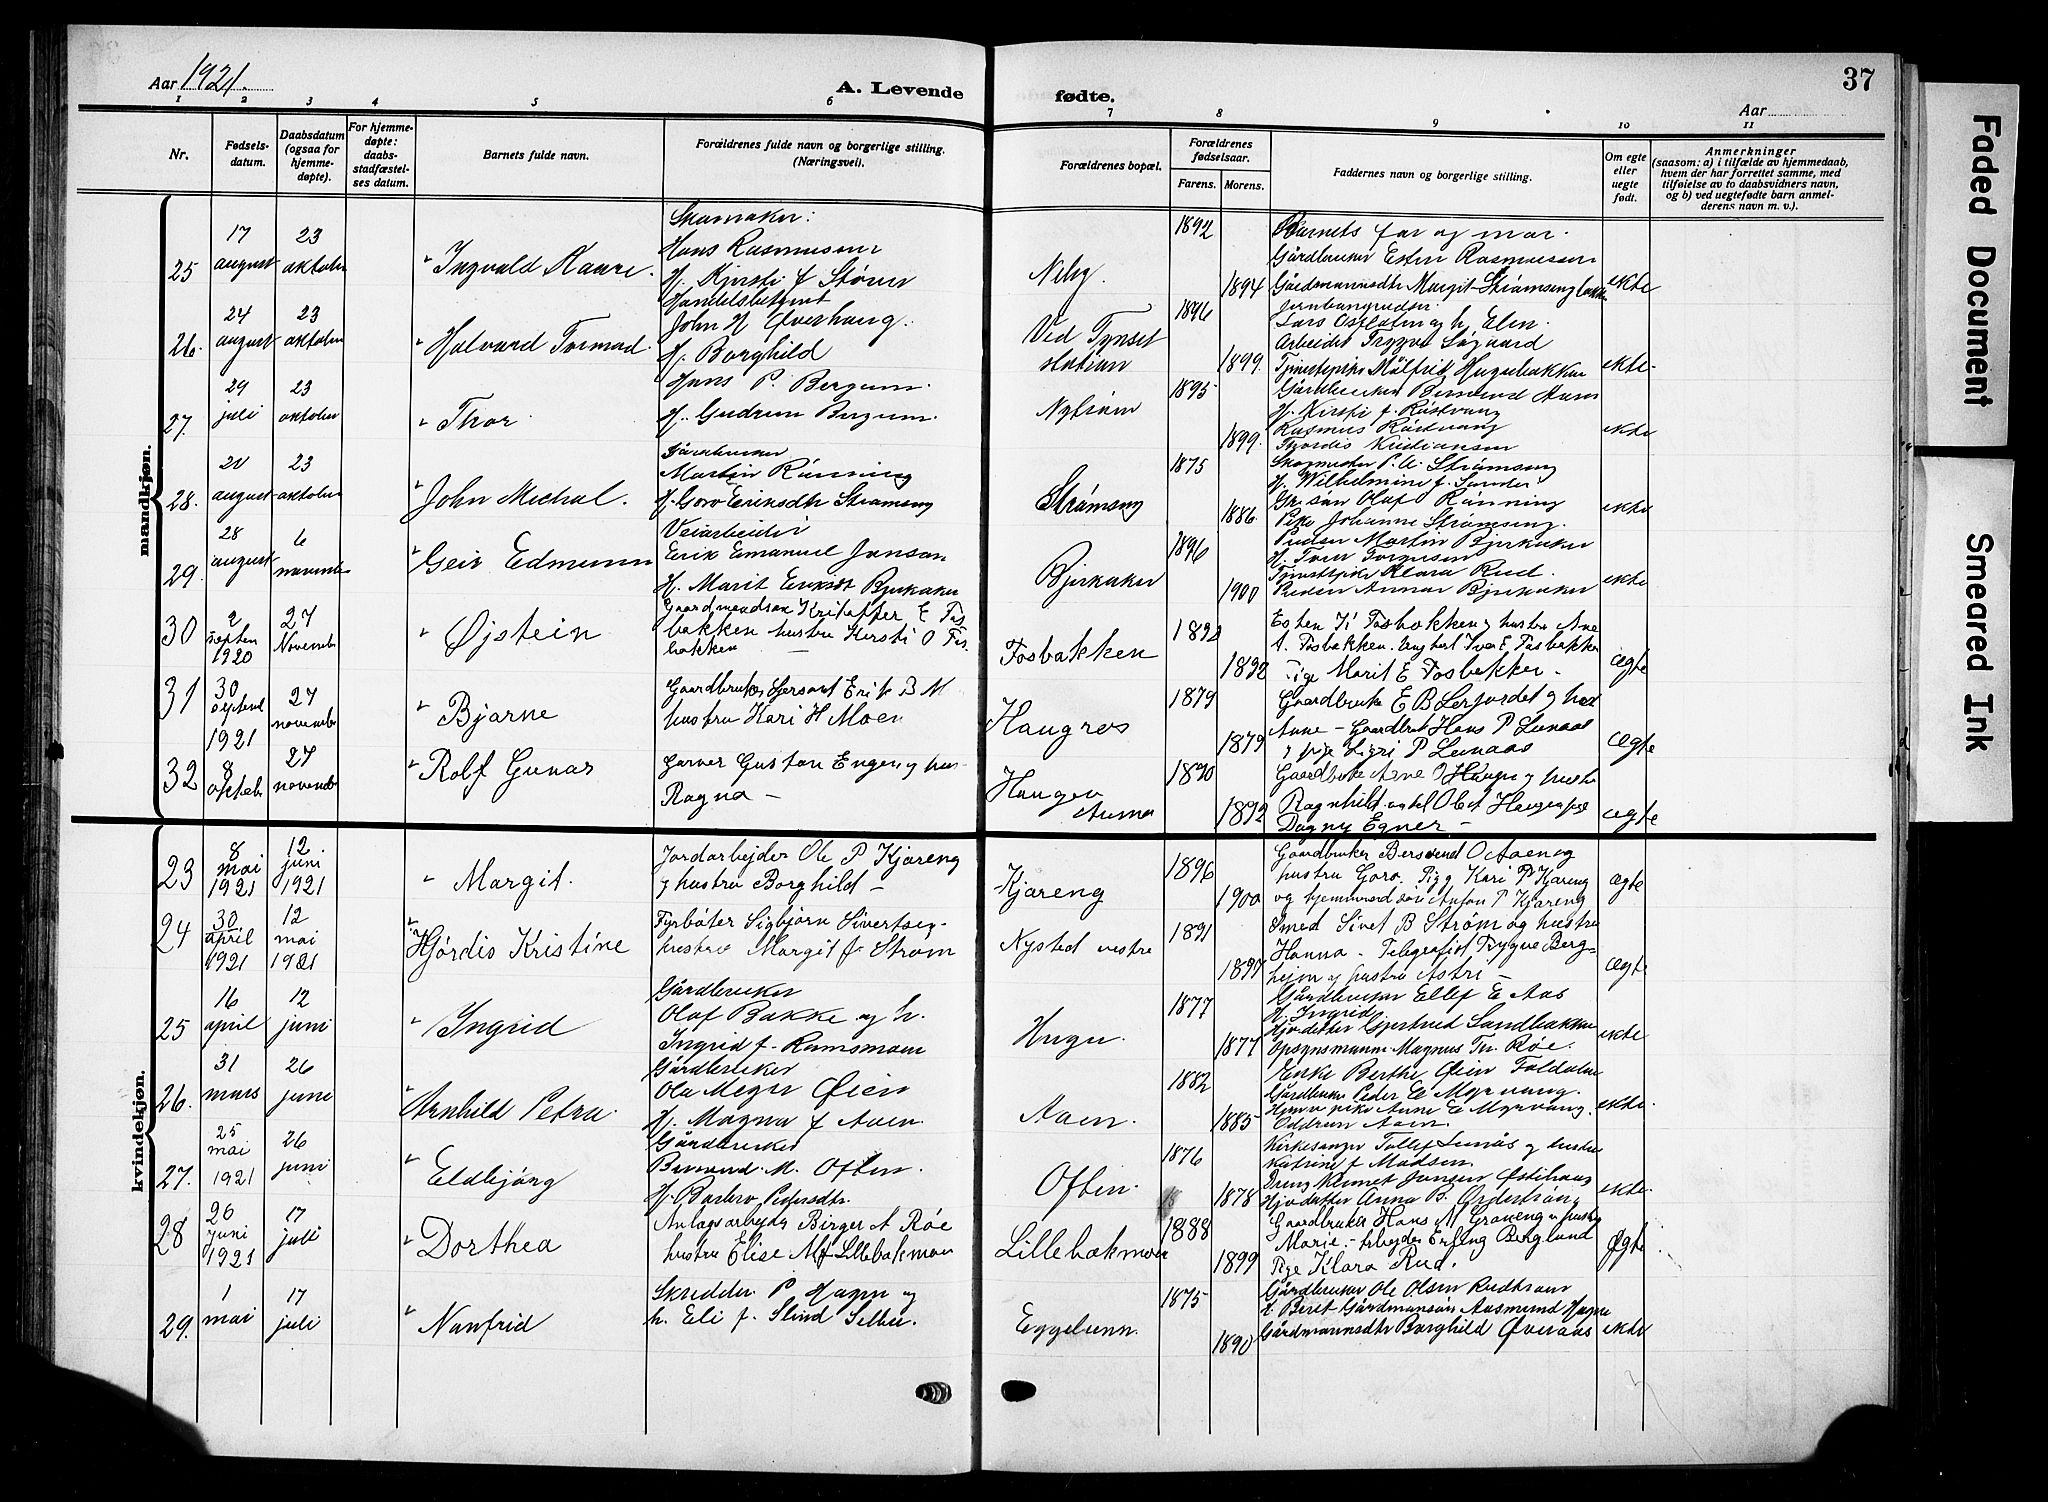 Aar 1921.
A. Levende fødte.
Aar
37
1 2 3 4 5 6 7 8 9 10 11
Nr.
Fødsels-
datum.
Daabsdatum
(ogsaa for
hjemme-
døpte).
For hjemme-
døpte:
daabs-
stadfæstel-
ses datum.
Barnets fulde navn.
Forældrenes fulde navn og borgerlige stilling.
(Næringsvei).
Forældrenes bopæl.
Forældrenes
fødselsaar.
Farens. Morens.
Faddernes navn og borgerlige stilling.
Om egte
eller
uegte
født.
Anmerkninger
(saasom: a) i tilfælde av hjemmedaab,
hvem der har forrettet samme, med
tilføielse av to daabsvidners navn,
og b) ved uegtefødte barn anmel-
derens navn m. v.).
mandkjøn.
25
17
august
23
oktober
Ingvald Kaare.
Skomaker:
Hans Rasmussen
Hj. Kjersti f Støren
Neby.
1892
1894
Barnets far og mor.
Gårdbruker Esten Rasmussen
Gårdmannsdtr Margit Strømseng
ekte
26.
24
august
23
oktober
Halvard Tormod
Handelsbetjent
John H Øverhaug.
Hj. Borghild
Ved Tynset
station
1896
1899.
Lars Ostlotin og hj Elin.
Arbeider Trygve Løgaard
ekte.
27.
29
juli
23
oktober
Thor
Hans P. Bergum.
Hj. Gudrun Bergum.
Nytrøen
1895
1899.
Hj. Kirsti f. Røstvang
Rasmus Røstvang
Kristiansen
ekte
28.
20
august
23
oktober
John Michal.
Gårdbruker
Martin Rønning
Hj. Goro Eriksdtr Strømseng
Strømseng
1875
1886.
Skogmester P. A. Strømseng
Hj. Wilhelmine f. Sunder
Olaf Rønning
Pike Johanne Strømseng.
ekte
29.
28
august
6
november
Geir Edmunn
Veiarbeider
Erik Emanuel Jonson
Hj. Marit Eriksdt Bjerkaker
Bjerkaker
1896
1900
Peder Martin Bjerkaker
Klara Rud.
Peder Annar Bjerkaker
ekte
30
2
septem
1920
27
November
Øjstein
Gaardmandsøn Kristoffer E Fos-
bakken hustru Kersti O Fos.
bakken
Fosbakken
1892
Esten K Fosbakken og hustru Ane
A. Fosbakken. Ungkarl Iver E. Fosbakken
Pige Marit E Fosbakken.
ægte
31
30
septemb
1921
27
november
Bjarne
Gaardbruker Sersant Erik B M
hustru Kari H Moen
Haugros
1879
1879
Gaardbruker E B Lerfordet og hust
Anne - Gaardbruk Hans P Lunaas
og pige Sigri P Lunaas
Ægte
32
8
oktober
27
november
Rolf Gunar
Garver Gustav Engen og hus-
Ragna -
Haugen
Auma
1890
1892
Gaardbruke Arne O Haugen og hustru
Ragnhild
Dagny Egner -
ægte
kvindekjøn.
23
8
mai
1921
12.
juni
1921
Margit.
Jordarbejder Ole P Kjæreng
og hustru Borghild -
Kjæreng
1896
1900
Gaardbruker Bersvend O Aaen og
hustru Goro. Pige Kari P Kjæreng
og hjemmeværende søn Anton P Kjæreng
ægte
24
30
april
1921
12
mai
1921
Hjørdis Kristine
Fyrbøter Sigbjørn Sivertsen-
hustru Margit f Strøm
Nysted vestre
1891
1897
Smed Sivet B Strøm og hustru
Hanna - Telegrafist Trygve Berg-
hejm og hustru Astri -
ægte
25
16
april
12
juni
Ingrid
Gårdbruker
Olaf Bakke og h.
Ingrid f. Ramsmoen
Haugen.
1877
1877
Gårdbruker Ellef E Aas
Hj. Ingrid
Gjertrud Sandbakken
Opsynsmann Magnus Th. Røe.
ekte
26.
31
mars
26
juni
Arnhild Petra
Gårdbruker
Ola Meger Øien
Hj. Magna f Aaen
Aaen.
1882
1885
Enke Berthe Øien Foldalen
Gårdbruker Peder E Myrvang.
Hjemv. pike Anne E Myrvang.
Oddrun Aaen
ekte.
27.
25
mai
1921
26
juni
Eldbjørg
Gårdbruker
Bersvend M. Often.
Hj. Barbro Pedersdtr.
Often.
1876
1878
Kirkesanger Tollef Lunås og hustru
Katrine f Madsen
Hjdatter Anna B. Ordertrøen
ekte.
28
20
juni
1921
17
juli
Dorthea
Anlagsarbejder Birger A Røe
hustru Elise M f Lillebakmoen
Lillebakmoen
1888
1899
Gaardbruker Hans M Graneng og hustru
Marie. - Arbejder Erling Berglund
Pige Klara Rud.
Ægte
29.
1
mai
17
juli
Nanfrid
Skredder P Haven og
h. Eli f. Slind Selbu.
Eggelunn
1875
1890
Gårdbruker Ole Olsen Rudtrøen
H Beret Gårdmannsøn Aasmund Hagen
Gårdmannsdtr Borghild Øveraas
ekte
Faded Document
Smeared Ink